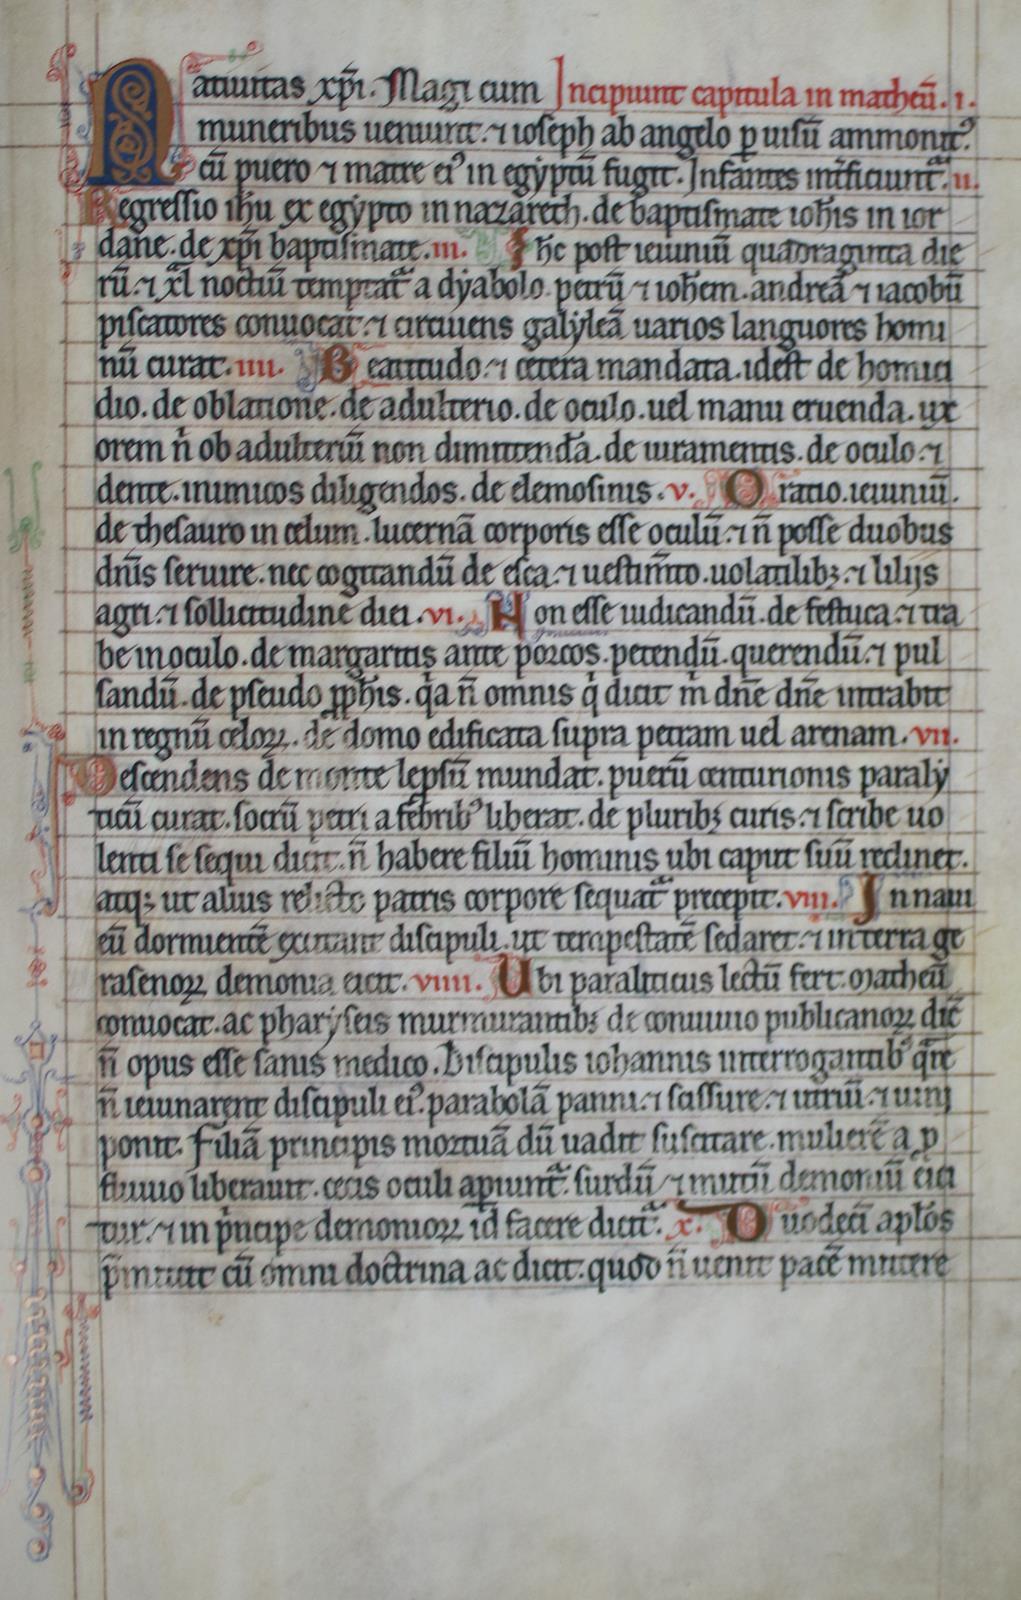 Natiuitas xp̄i. Magi cum Incipiunt capitula in matheū. i.
muneribus ueniunt. ⁊ ioseph ab angelo p̱ uisū ammonitꝰ
cū puero ⁊ matre eiꝰ in egẏptū fugit. Infantes int̄ficiunt᷑. ii.
Regressio ih̄u ex egẏpto in nazareth. de baptismate ioh̄is in ior
dane. de xp̄i baptismate. iii. Ih̄c post ieiuniū quadraginta die
rū. ⁊ xl noctiū temptat᷑ a dẏabolo. petrū ⁊ ioh̄em. andreā ⁊ iacobū
piscatores conuocat. ⁊ circuiens galẏleā uarios languores homi
nū curat. iiii. Beatitudo. ⁊ cetera mandata. idest de homici
dio. de oblatione. de adulterio. de oculo. uel manu eruenda. ux
orem ñ ob adulteriū non dimittenda. de iuramentis. de oculo. ⁊
dente. inimicos diligendos. de elemosinis. v. Oratio. ieiuniū.
de thesauro in celum. lucernā corporis esse oculū. ⁊ ñ posse duobus
dn̄is seruire. nec cogitandū de esca. ⁊ uestim̄to. uolatilibꝫ. ⁊ lilijs
agri. ⁊ sollicitudine diei. vi. Non esse iudicandū. de festuca. ⁊ tra
be in oculo. de margaritis ante porcos. petendū. querendū. ⁊ pul
sandū. de pseudo ꝓph̄is. q̇a ñ omnis q̇ dicit m̄ dn̄e dn̄e intrabit
in regnū celoꝝ. de domo edificata supra petram uel arenam. vii.
Descendens de monte lepsū mundat. puerū centurionis paralẏ
ticū curat. socrū petri a febribꝰ liberat. de pluribꝫ curis. ⁊ scribe uo
lenti se sequi dicit. ñ habere filiū hominis ubi caput suū reclinet.
atqꝫ ut alius relicto patris corpore sequat᷑ precepit. viii. In naui
eū dormientē excitant discipuli. ut tempestatē sedaret. ⁊ in terra ge
rasenoꝝ demonia eicit. viiii. Ubi paraliticus lectū fert. Matheū
conuocat. ac pharẏseis murmurantibꝫ de conuiuio publicanoꝝ dic̄
ñ opus esse sanis medico. Discipulis iohannis interrogantibꝰ q̄re
ñ ieiunarent discipuli eiꝰ. parabolā panni. ⁊ scissure. ⁊ utriū. ⁊ uini
ponit. Filiā principis mortuā dū uadit suscitare. mulierē a p̱
fluuio liberauit. cecis oculi apiunt᷑. surdū ⁊ mutū demoniū eici
tur. ⁊ in p̍ncipe demonioꝝ id facere dicit᷑. x. Duodecī apl̄os
p̄mittit cū omni doctrina ac dicit. quod ñ uenit pacē mittere